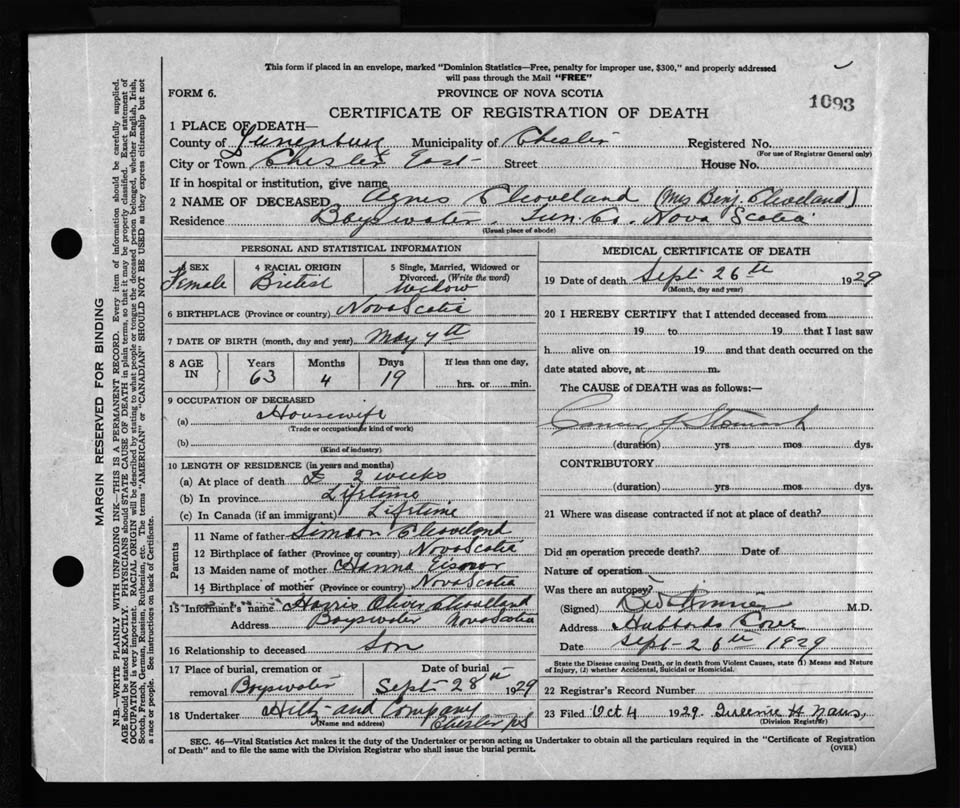 This form if placed in an envelope, marked "Dominion Statistics—Free, penalty for improper use, $300," and properly addressed
will pass through the Mail "FREE"
FORM 6.
PROVINCE OF NOVA SCOTIA
1093
CERTIFICATE OF REGISTRATION OF DEATH
1 PLACE OF DEATH—
County of Lunenburg Municipality of Chester Registered No.
(For use of Registrar General only)
City or Town Chester East Street House No.
If in hospital or institution, give name
2 NAME OF DECEASED Agnes Cleveland (Mrs Benj. Cleveland)
Residence Bayswater. Lun. Co. Nova Scotia
(Usual place of abode)
PERSONAL AND STATISTICAL INFORMATION
3 SEX
Female
4 RACIAL ORIGIN
British
5 Single, Married, Widowed or
Divorced. (Write the word)
Widow
6 BIRTHPLACE (Province or country) Nova Scotia
7 DATE OF BIRTH (month, day and year) May 7th
8 AGE IN
Years Months Days If less than one day,
63 4 19 hrs. or min.
9 OCCUPATION OF DECEASED
(a) Housewife
(Trade or occupation or kind of work)
(b)
(Kind of industry)
10 LENGTH OF RESIDENCE (in years and months)
(a) At place of death weeks
(b) In province Lifetime
(c) In Canada (if an immigrant) Lifetime
Parents
11 Name of father Simeon Cleveland
12 Birthplace of father (Province or country) Nova Scotia
13 Maiden name of mother Hanna
14 Birthplace of mother (Province or country) Nova Scotia
15 Informant's name Harris Oliver Cleveland
Address Bayswater Nova Scotia
16 Relationship to deceased Son
17 Place of burial, cremation or
removal Bayswater
Date of burial
Sept 28th 1929
18 Undertaker Hiltz and Company
(Name and address) Chester NS
MEDICAL CERTIFICATE OF DEATH
19 Date of death Sept 26th 1929
(Month, day and year)
20 I HEREBY CERTIFY that I attended deceased from
19 to 19 that I last saw
h alive on 19 and that death occurred on the
date stated above, at m.
The CAUSE of DEATH was as follows:—
Cancer of Stomach
(duration) yrs mos dys.
CONTRIBUTORY
(duration) yrs. mos. dys.
21 Where was disease contracted if not at place of death?
Did an operation precede death? Date of
Nature of operation
Was there an autopsy?
(Signed) M.D.
Address Hubbards Cove
Date Sept 26th 1929
State the Disease causing Death, or in death from Violent Causes, state (1) Means and Nature
of Injury, (2) whether Accidental, Suicidal or Homicidal.
22 Registrar's Record Number
23 Filed Oct 4 1929 Queenie H Naus,
(Division Registrar)
SEC. 46—Vital Statistics Act makes it the duty of the Undertaker or person acting as Undertaker to obtain all the particulars required in the "Certificate of Registration
of Death" and to file the same with the Division Registrar who shall issue the burial permit.
(OVER)
MARGIN RESERVED FOR BINDING
N.B.—WRITE PLAINLY WITH UNFADING INK—THIS IS A PERMANENT RECORD. Every item of information should be carefully supplied.
AGE should be stated EXACTLY. PHYSICIANS should STATE CAUSE OF DEATH in plain terms, so that it may be properly classified. Exact statement of
OCCUPATION is very important. RACIAL ORIGIN will be described by stating to what people or tongue the deceased person belonged, whether English, Irish,
Scotch, French, German, Russian, Ruthenian, etc. The terms "AMERICAN" or "CANADIAN" SHOULD NOT BE USED as they express citizenship but not
a race or people. See instructions on back of Certificate.